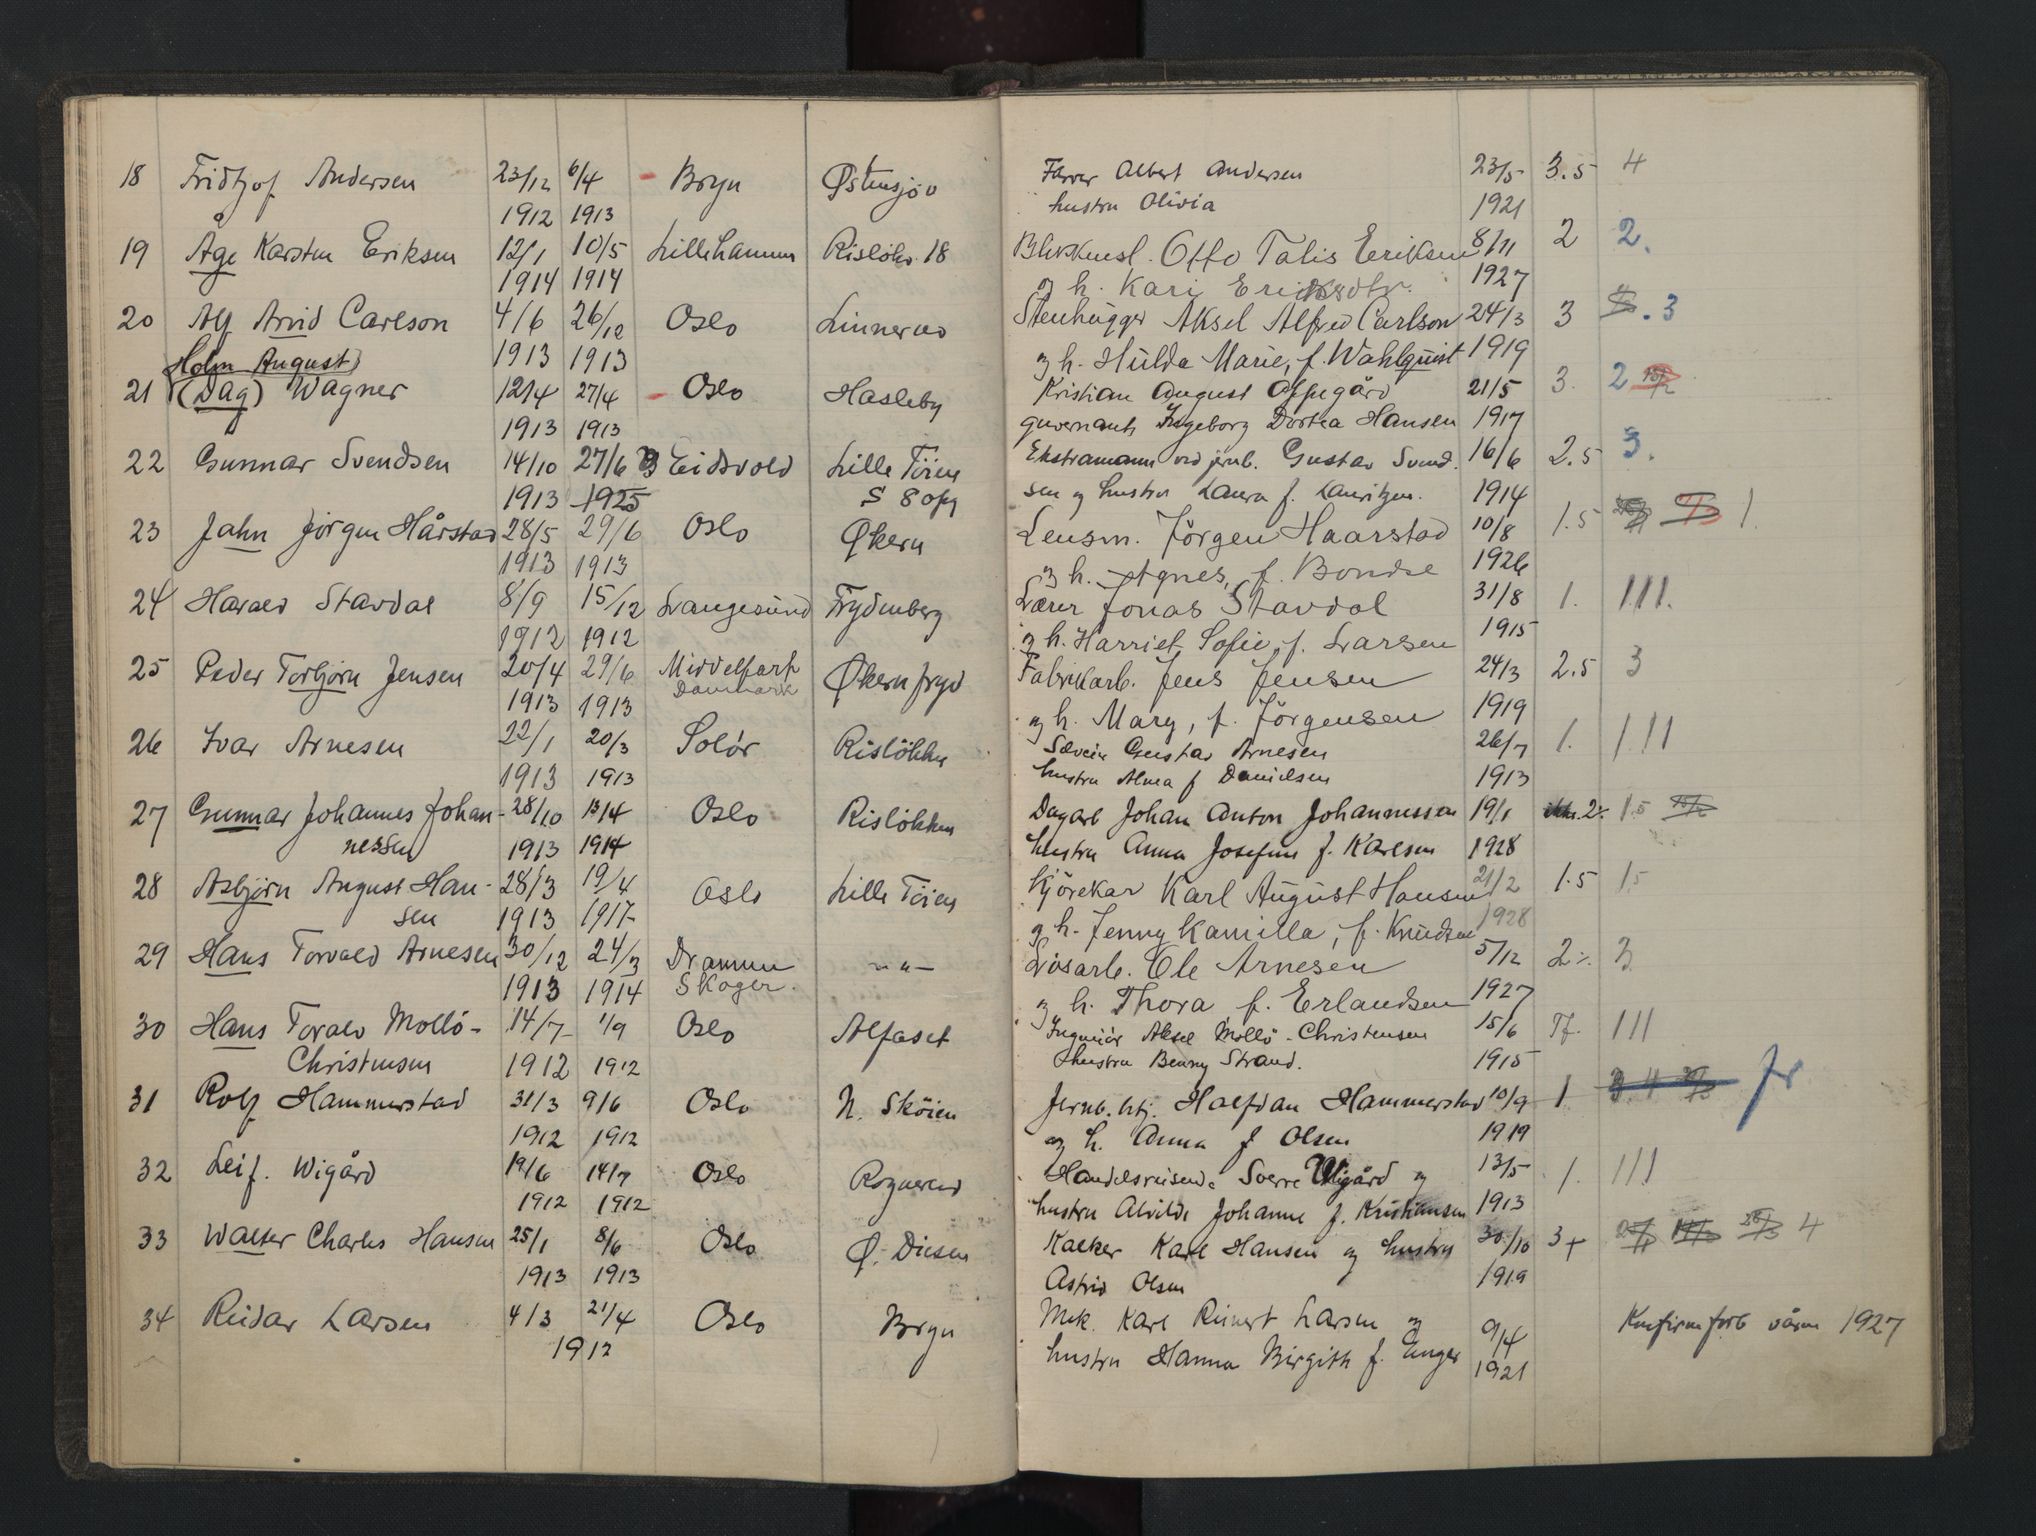 18 Fridtjof Andersen 23/12 6/4 Bryn Østensjøv Farver Albert Andersen 23/5 3.5 4
1912 1913 hustru Olivia 1921
19 Åge Karsten Eriksen 12/1 10/5 Lillehammer Risløkv. 18 Otto Talis Eriksen 8/11 2 2.
1914 1914 og h. Kari 1927
20 Alf Arvid Carlson 4/6 26/12 Oslo Linnerud Stenhugger Aksel Alfred Carlson 24/3 3 3
Holm August 1913 1913 og h. Hulda Marie, f. Wahlquist 1919
21 (Dag) Wagner 12/4 27/4 Oslo Hasleby Kristian August Oppegård 21/5 3. 2
1913 1913 guvernante Ingeborg Dortea Hansen 1917
22 Gunnar Svendsen 14/10 27/6 Eidsvold Lille Töien Ekstramann ved jernb. Gustav Svend- 16/6 2.5 3.
1913 1925 S 8 opg sen og hustru Laura f. Lauritzen. 1914
23 Jahn Jörgen Hårstad 28/5 29/6 Oslo Økern Lensm. Jörgen Haarstad 10/8 1.5 1.
1913 1913 og h. Agnes, f. Bondse 1926
24 Harald Stavdal 8/9 15/12 Langesund Frydenberg Lærer Jonas Stavdal 31/8 1. 111.
1912 1912 og h. Harriet Sofie, f. Larsen 1915
25 Peder Torbjørn Jensen 20/4 29/6 Middelfart Økernfryd Fabrikarb. Jens Jensen 24/3 2.5 3
Danmark
1913 1913 og h. Mary, f. Jörgensen 1919
26 Ivar Arnesen 22/1 20/3 Solör Rislökken Gustav Arnesen 26/7 1. 111
1913 1913 hustru Alma f Danielsen 1913
27 Gunnar Johannes Johan- 28/10 13/4 Oslo Rislökken Dagarb Johan Anton Johannessen 19/1 2÷ 1.5
nessen 1913 1914 hustru Anna Josefine f. Karlsen 1928
28 Asbjörn August Han- 28/3 19/4 Oslo Lille Töien Kjörekar Karl August Hansen 21/2 1.5 1.5
sen 1913 1917 og h. Jenny Kamilla, f. Knudsen 1928
29 Hans Torvald Arnesen 30/12 24/3 Drammen — " — Løsarb. Ole Arnesen 5/12 2÷ 3
1913 1914 Skoger. og h. Thora f. Erlandsen 1927
30 Hans Torald Mollö- 14/7 1/9 Oslo Alfaset Ingeniör Aksel Mollö-Christensen 15/6 Tf. 111
Christensen 1912 1912 hustru Benny Strand. 1915
31 Rolf Hammerstad 31/3 9/6 Oslo N. Sköien Jernb. btj. Halfdan Hammerstad 10/9 1 fr
1912 1912 og h. Anna f Olsen 1919
32 Leif. Wigård 19/6 14/7 Oslo Rognerud Handelsreisende Sverre Wigård og 13/5 1. 111
1912 1912 hustru Alvilde Johanne f. Kristiansen 1913
33 Walter Charles Hansen 25/1 8/6 Oslo Ø. Disen Kalker Karl Hansen og hustru 30/10 3+ 4
1913 1913 Astrid Olsen 1919
34 Reidar Larsen 4/3 21/4 Oslo Bryn Mek. Karl Reinert Larsen og 9/4 Konfirm forb våren 1927
1912 hustru Hanna Birgith f. Enger 1921